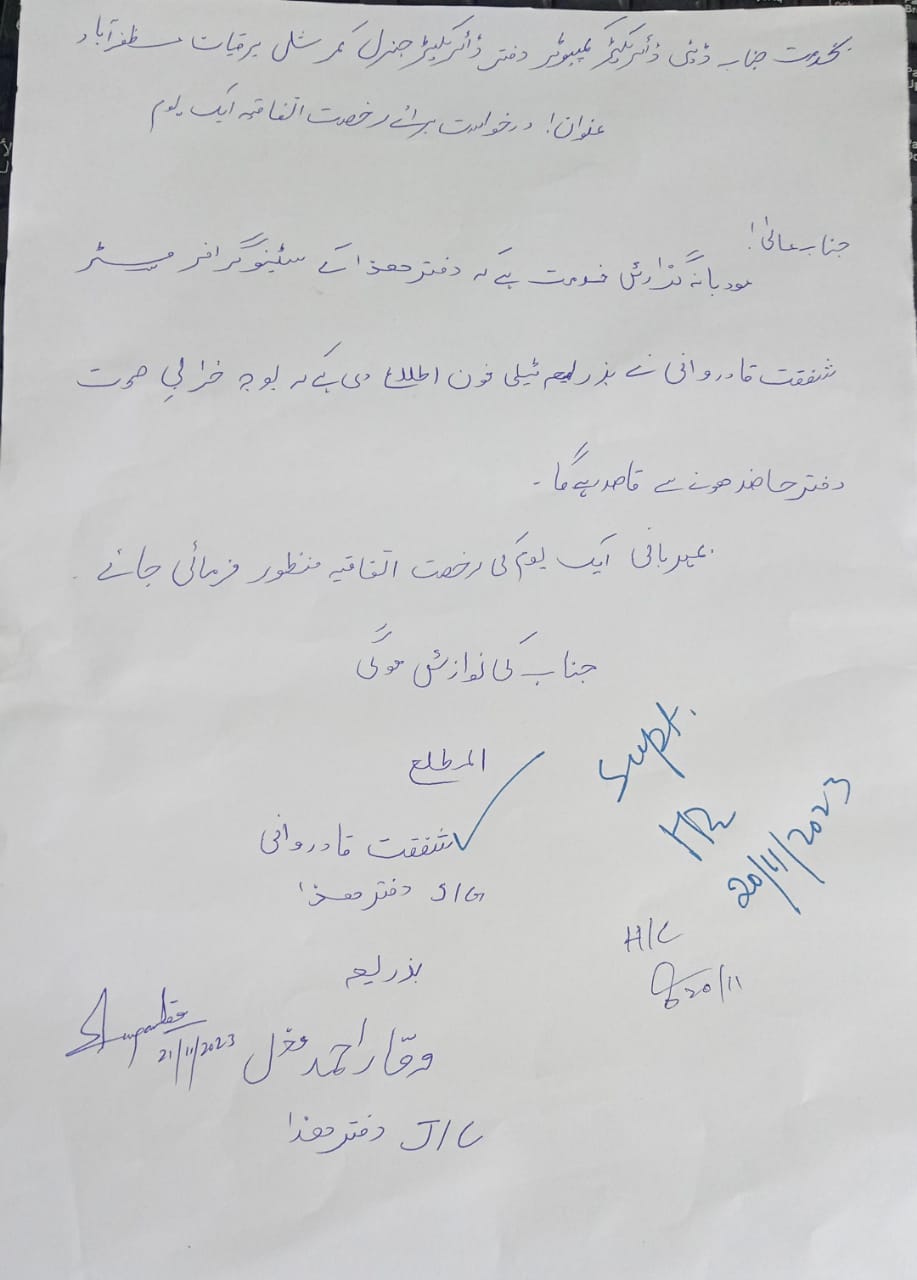 بخدمت جناب ڈپٹی ڈائریکٹر کمپیوٹر دفتر ڈائریکٹر جنرل کمرشل برقیات مظفرآباد
عنوان! درخواست برائے رخصت اتفاقیہ ایک یوم
جناب عالیٰ!
مودبانہ گذارش خدمت ہے کہ دفتر ھذا کے سٹینوگرافر مسٹر
شفقت قادر وانی نے بذریعہ ٹیلی فون اطلاع دی ہے کہ بوجہ خرابی صحت
دفتر حاضر ھونے سے قاصر رہے گا۔
مہربانی ایک یوم کی رخصت اتفاقیہ منظور فرمائی جائے
جناب کی نوازش ہوگی
المطلع
شفقت قادر وانی
S/G دفتر ھذا
بذریعہ
وقار احمد مغل
J/C دفتر ھذا
21/11/2023
Supt.
20/11/2023
H/C
20/11